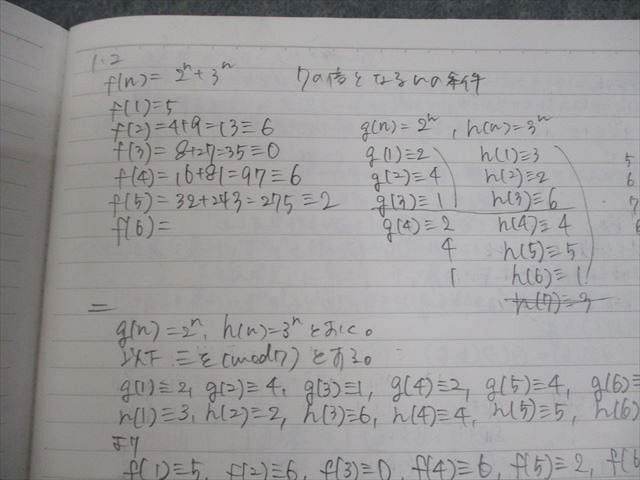 1.2
f(n) = 2ⁿ + 3ⁿ 7の倍となるnの条件
f(1)=5
f(2)=4+9=13≡6
f(3)=8+27=35≡0
f(4)=16+81=97≡6
f(5)=32+243=275≡2
f(6)=
g(n)=2ⁿ, h(n)=3ⁿ
g(1)≡2 h(1)≡3
g(2)≡4 h(2)≡2
g(3)≡1 h(3)≡6
g(4)≡2 h(4)≡4
4 h(5)≡5
1 h(6)≡1
h(7)=3
5
6
7
6
g(n)=2ⁿ, h(n)=3ⁿとおく。
以下 ≡を(mod7)とする。
g(1)≡2, g(2)≡4, g(3)≡1, g(4)≡2, g(5)≡4, g(6)≡
h(1)≡3, h(2)≡2, h(3)≡6, h(4)≡4, h(5)≡5, h(6)
より
f(1)≡5, f(2)≡6, f(3)≡0, f(4)≡6, f(5)≡2, f(6